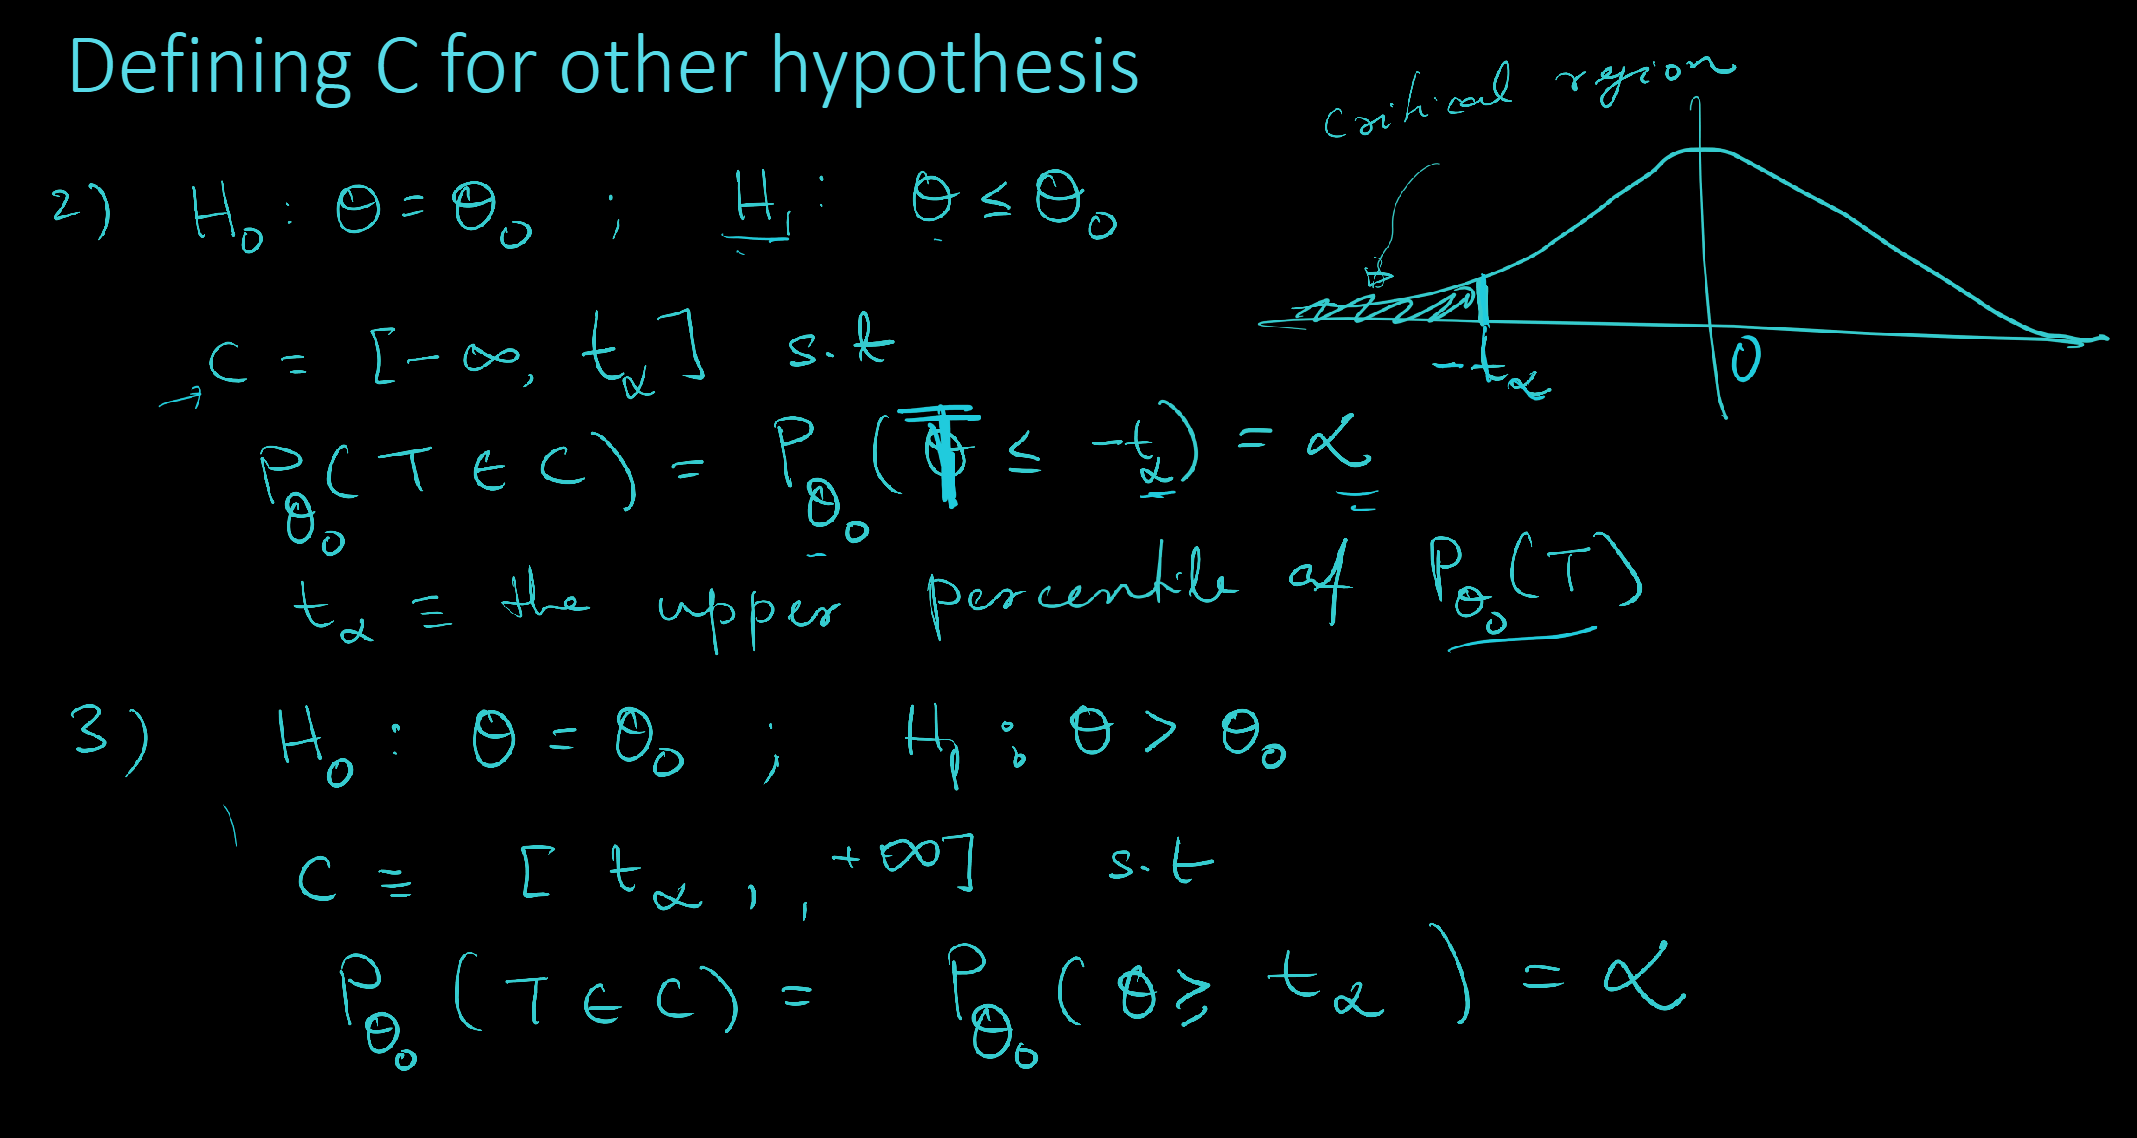 Defining C for other hypothesis
critical region
2) H₀ : θ = θ₀ ; H₁ : θ ≤ θ₀
C = [-∞, t_α] s.t
-t_α 0
P_θ₀ (T ∈ C) = P_θ₀ (T ≤ -t_α) = α
t_α ≡ the upper percentile of P_θ₀(T)
3) H₀ : θ = θ₀ ; H₁ : θ > θ₀
C ≡ [ t_α , , +∞] s.t
P_θ₀ (T ∈ C) = P_θ₀ (θ ≥ t_α) = α